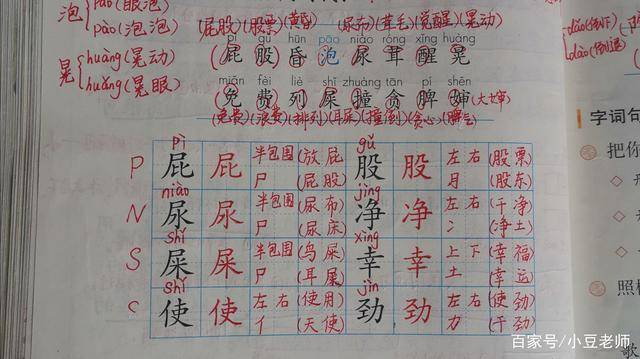 泡 pào(眼泡)
pāo(泡泡)
晃 huàng(晃动)
huǎng(晃眼)
(屁股)(股票)(黄昏) (尿布)(茸毛)(觉醒)(晃动)
pì gǔ hūn pào niào róng xǐng huàng
屁 股 昏 泡 尿 茸 醒 晃
miǎn fèi liè shǐ zhuàng tān pí shěn
免 费 列 屎 撞 贪 脾 婶 (大婶)
(免费)(浪费)(排列)(耳屎)(撞倒)(贪心)(脾气)
pì gǔ
P 屁 屁 半包围 尸 (放屁) (屁股) 股 股 左右 月 (股票) (股东)
niào jìng
N 尿 尿 半包围 尸 (尿布) (尿床) 净 净 左右 冫 (干净) (净土)
shǐ xìng
S 屎 屎 半包围 尸 (鸟屎) (耳屎) 幸 幸 上下 土 (幸福) (幸运)
shǐ jìn
C 使 使 左右 亻 (使用) (天使) 劲 劲 左右 力 (使劲) (干劲)
dǎo(倒下)
dào(倒退)
字词句
把你
照样
歌
百家号/小豆老师